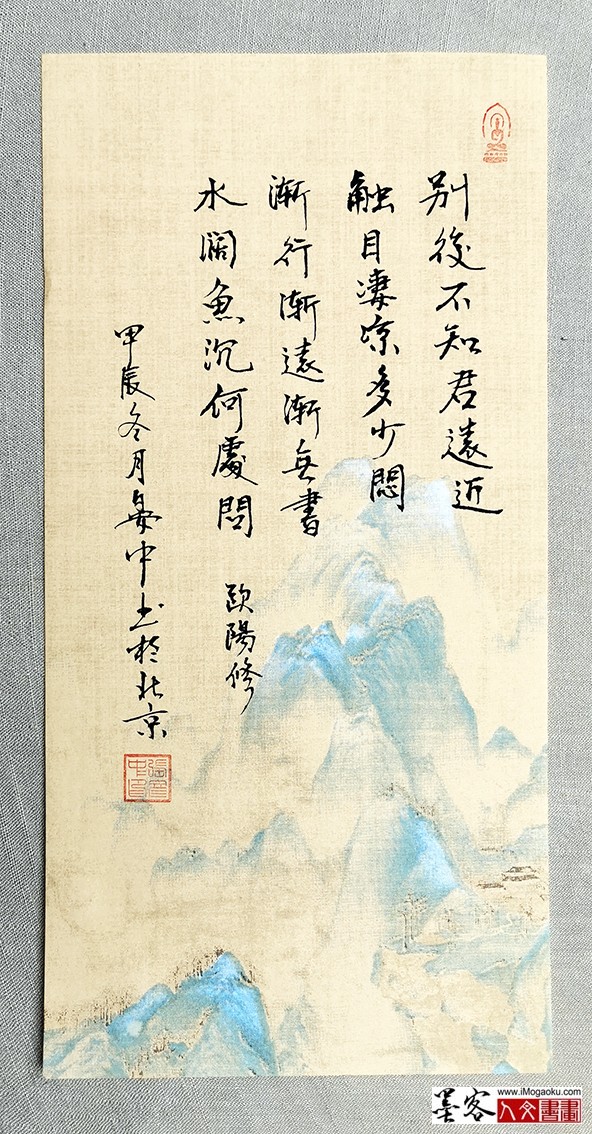 別後不知君遠近
触目凄凉多少悶
漸行漸遠漸無書
水闊魚沉何處問
歐陽修
甲辰冬月中书於北京
www.iMogaoku.com
墨客人文書畫